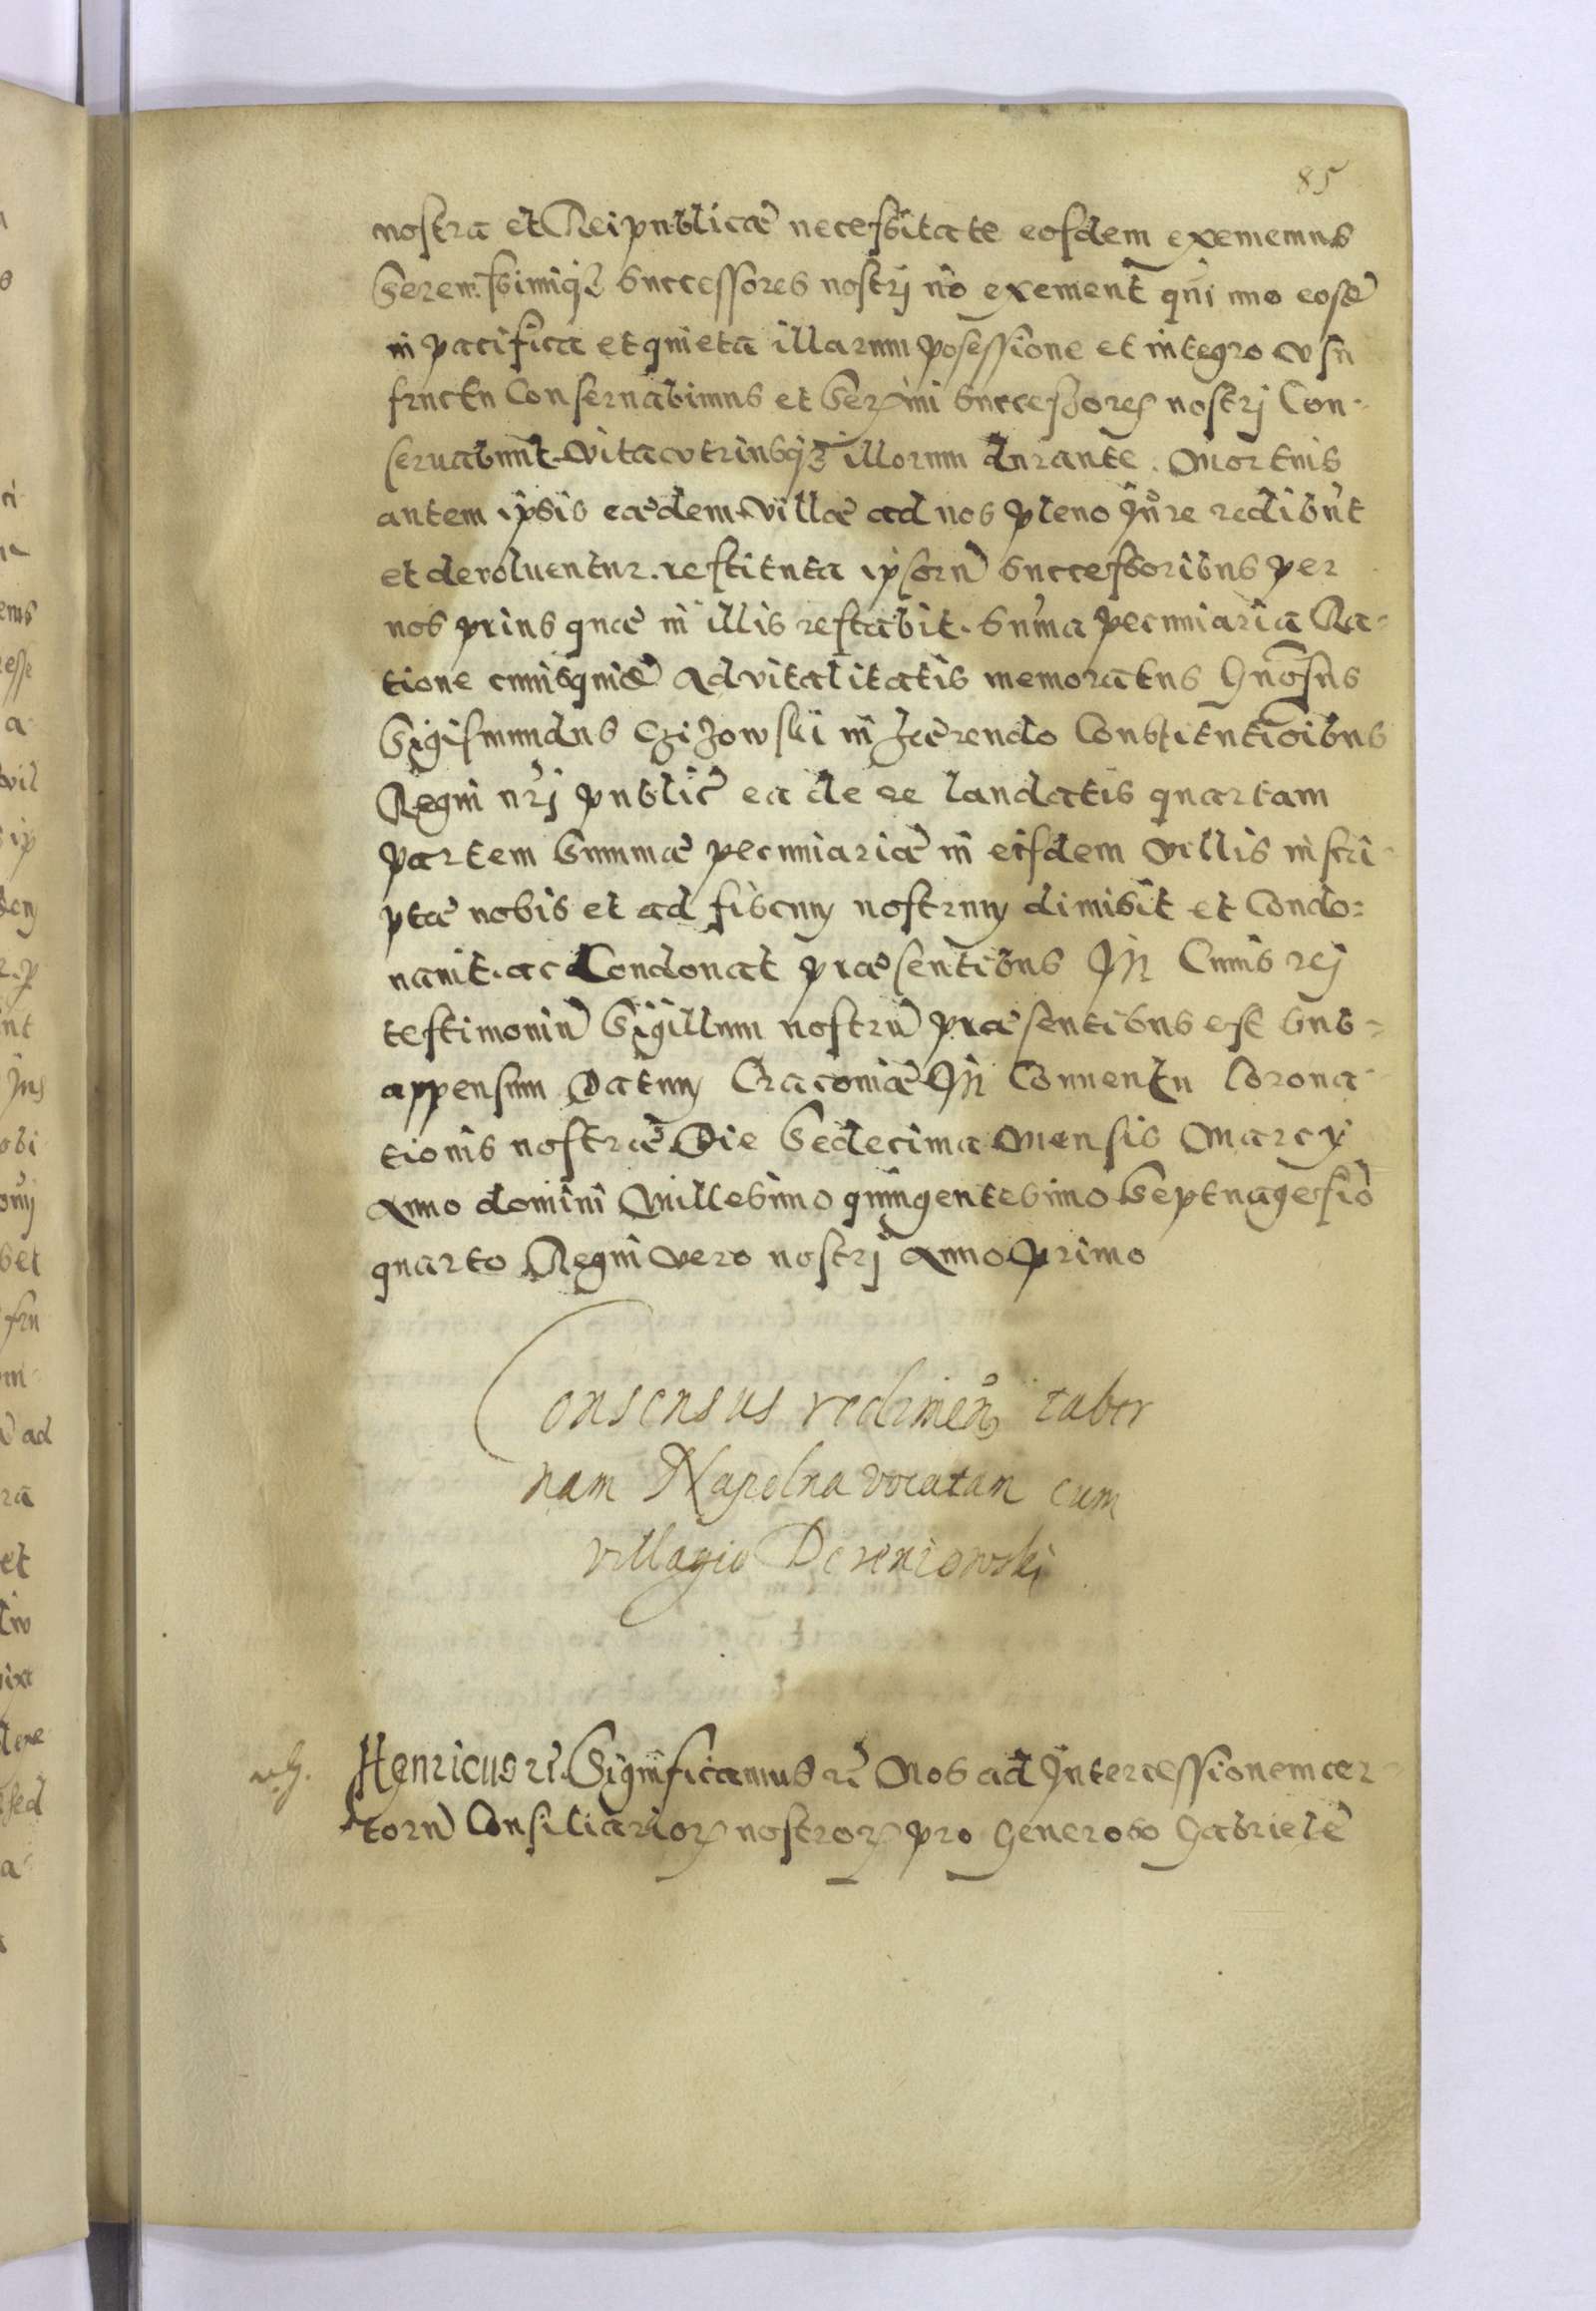 85
nostra et Reipublicæ necessitate eosdem exememus
Serenissimiq3 Successores nostrj nō exement qui imo eosdē
in pacifica et quieta illarum posessione et integro vsu
fructu Conseruabimus et Serꝫmi successores nostrj Con-
seruabunt vita vtriusq3 illorum durante. Mortuis
autem ipsis eædem villæ ad nos pleno Jure redibūt
et deuoluentur. restituta ipsorū successoribus per
nos prius quæ in illis restabit. Sūma pecuniaria Ra-
tione cuiusquidē aduitalitatis memoratus Gnōsus
Sigismundus Czizowski inhærendo Constitutiōibus
Regni nrj public̄ ea de re laudatis quartam
partem Summæ pecuniariæ in eisdem villis inscri-
ptæ nobis et ad fiscum nostrum dimisit et Condo-
nauit. ac Condonat præsentibus In Cuius rej
testimoniū Sigillum nostrū præsentibus est sub-
appensum Datum Cracouiæ In Conuentu Corona-
tionis nostræ Die Sedecima Mensis Marcij
Anno domini Millesimo quingentesimo Septuagesio
quarto Regni vero nostrj Anno primo
Consensus redimen̄ taber
nam Napolna vocatam cum
villagio Dereniowski
Henricus rē. Significamus rē Nos ad Intercessionem cer-
torū Consiliarioꝝ nostroꝝ pro Generoso Gabriele